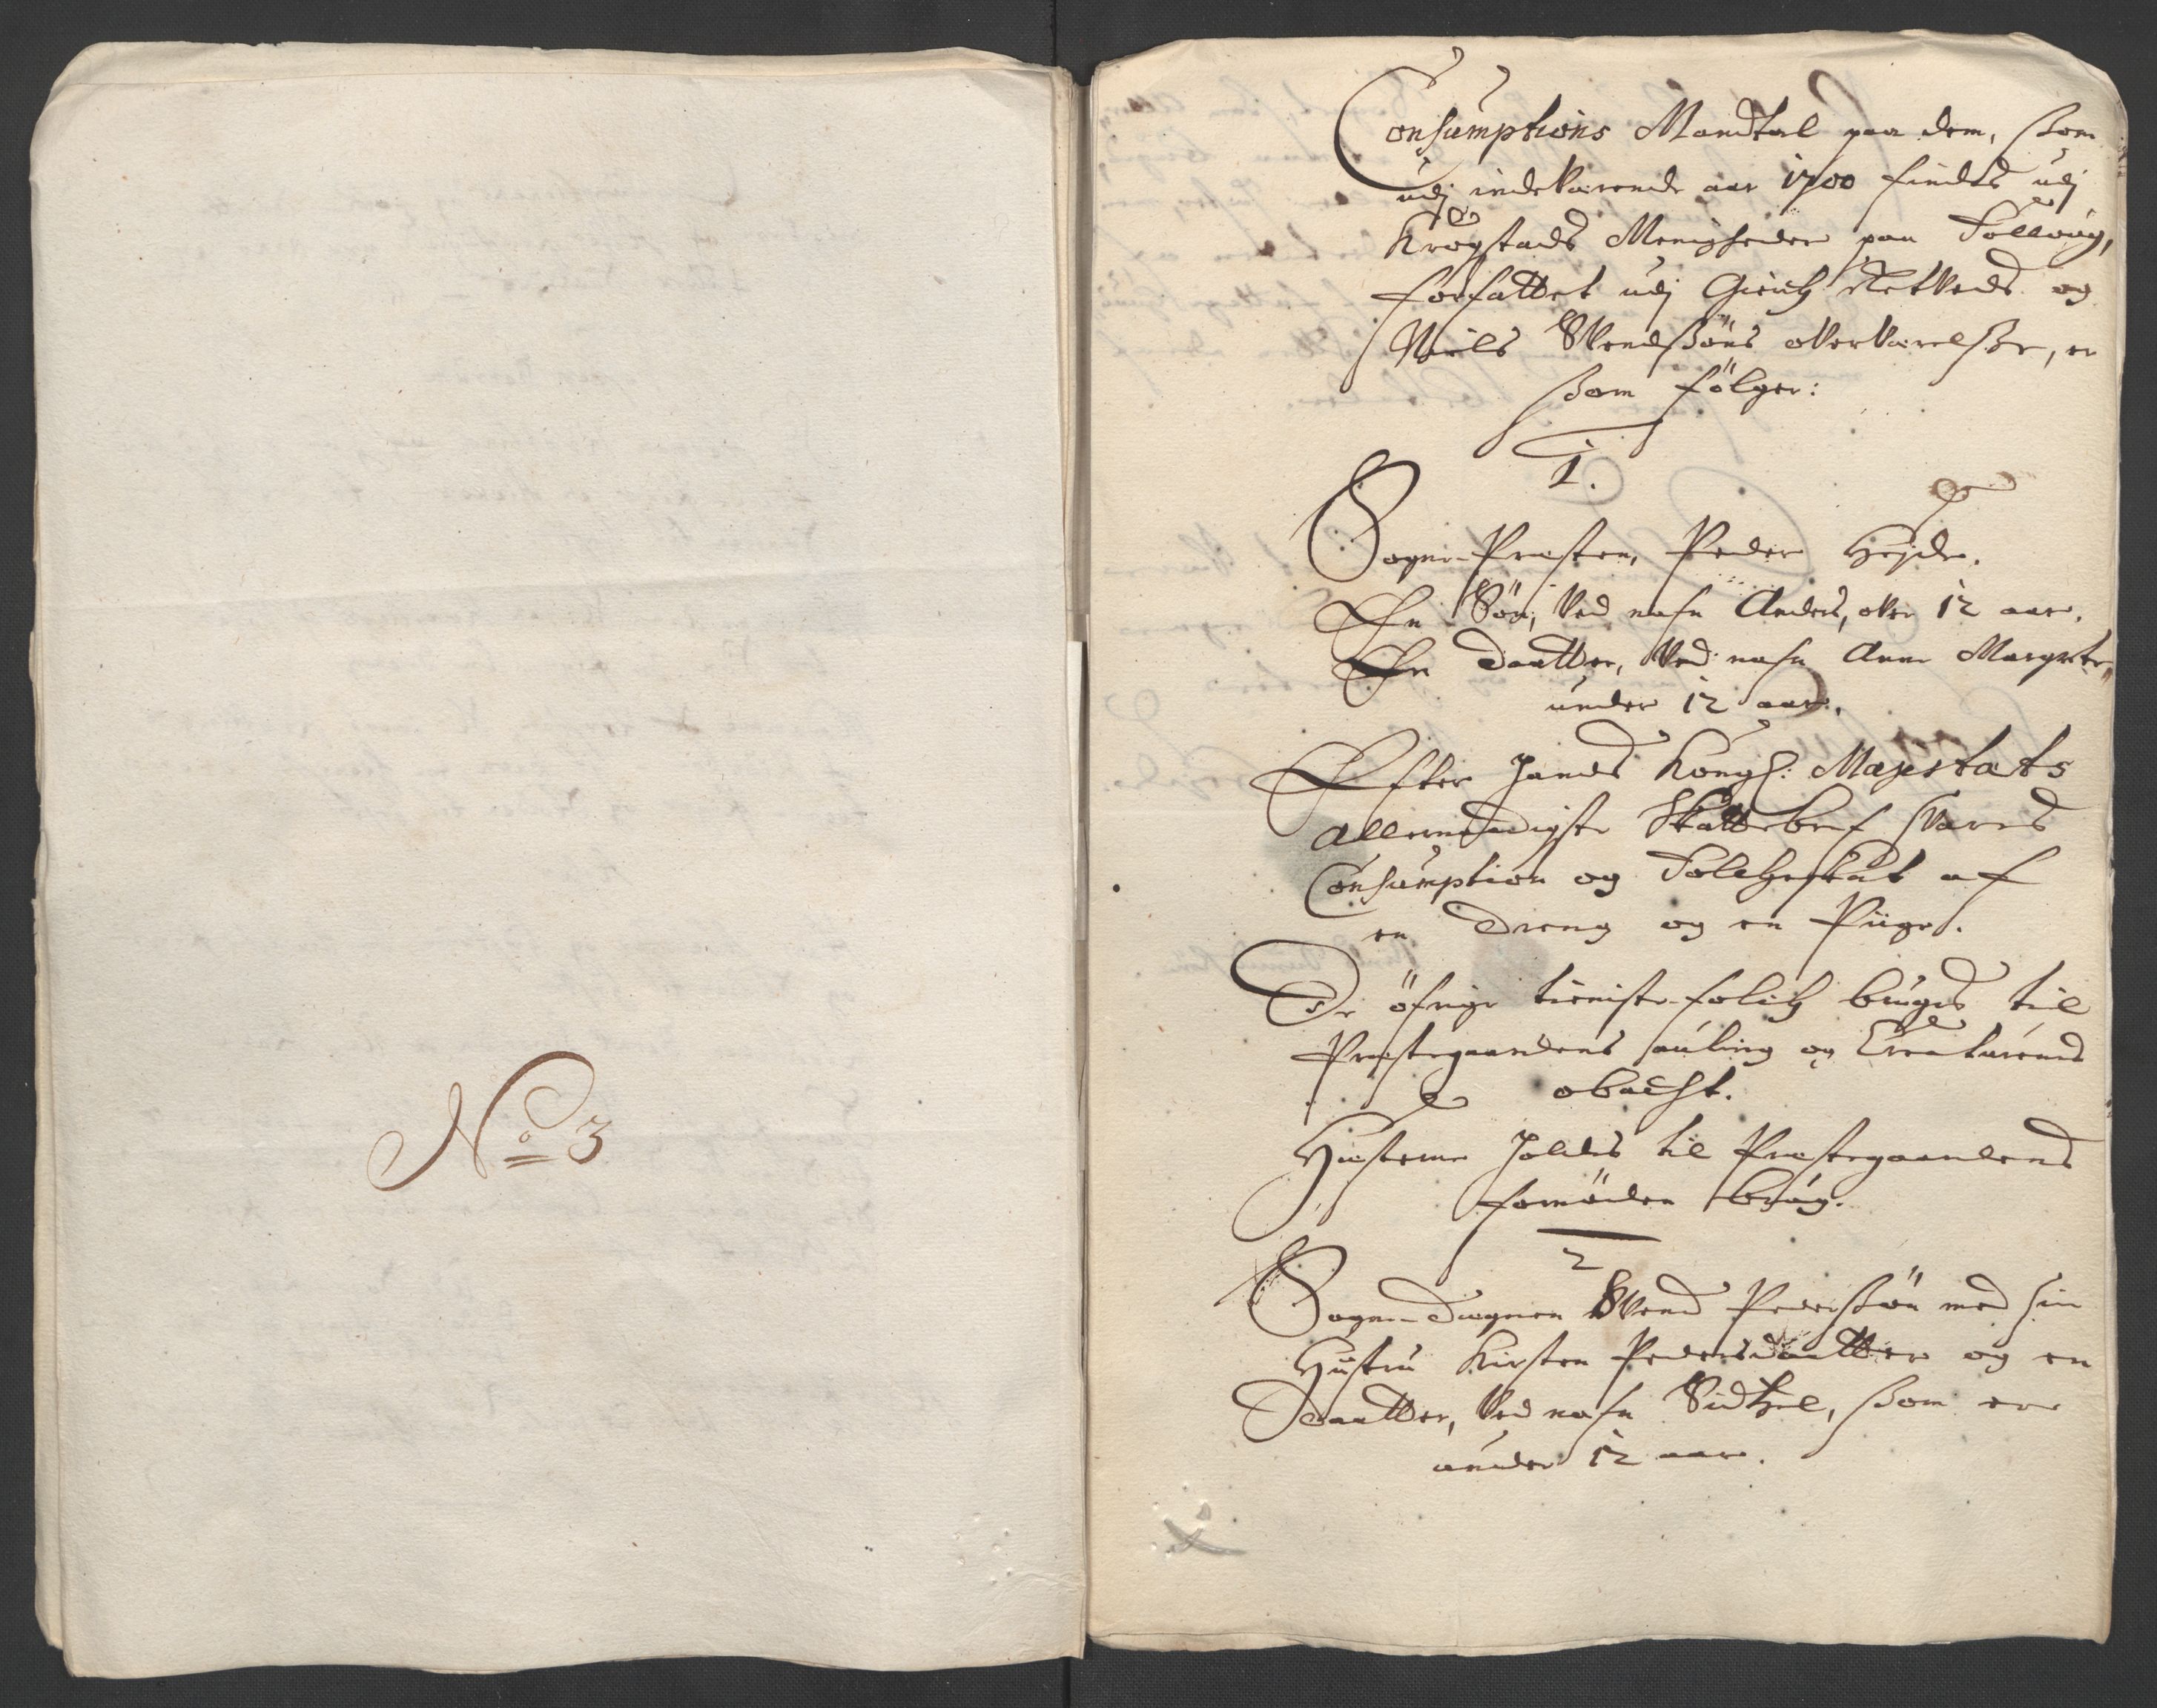 No 3
Consumptions Mandtal paa dem, ssom
udj indeværende aar 1700 findes udj
Krogstads Menigheder paa Folloug,
forfattet udj Giert Netveds og
Niels Svendssøns overværelsse, er
ssom følger:
1.
Sogne-Præsten, Peder Hejde.
En Søn, ved nafn Anders, over 12 aar.
En Daatter, ved nafn Anne Margrete,
under 12 aar.
Efter hands Kongl: Majestæts
allernaadigste Skattebref svares
Consumption og Folcheskat af
en Dreng og en Piige.
De öfrige tieniste-folch bruges til
Præstegaardens auling og Creaturernes
obacht.
Hæsterne holdes til Præstegaardens
fornöden brug.
2
Sogne-Degnen Svend Pederssøn med sin
Hustru Kirsten Pedersdaatter og en
Daatter, ved nafn Sidtzel, ssom er
under 12 aar.